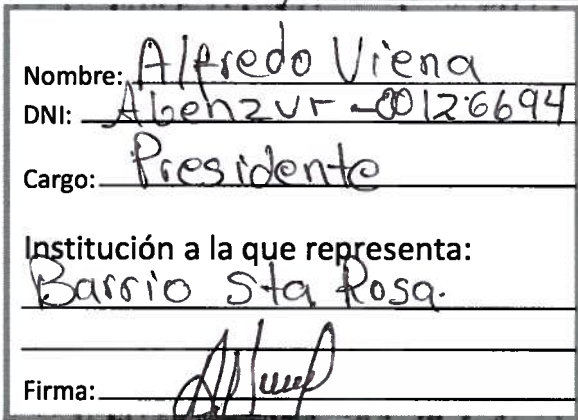 Nombre: Alfredo Viena
DNI: Abenzur - 00126694
Cargo: Presidente
Institución a la que representa:
Barrio Sta Rosa.
Firma: